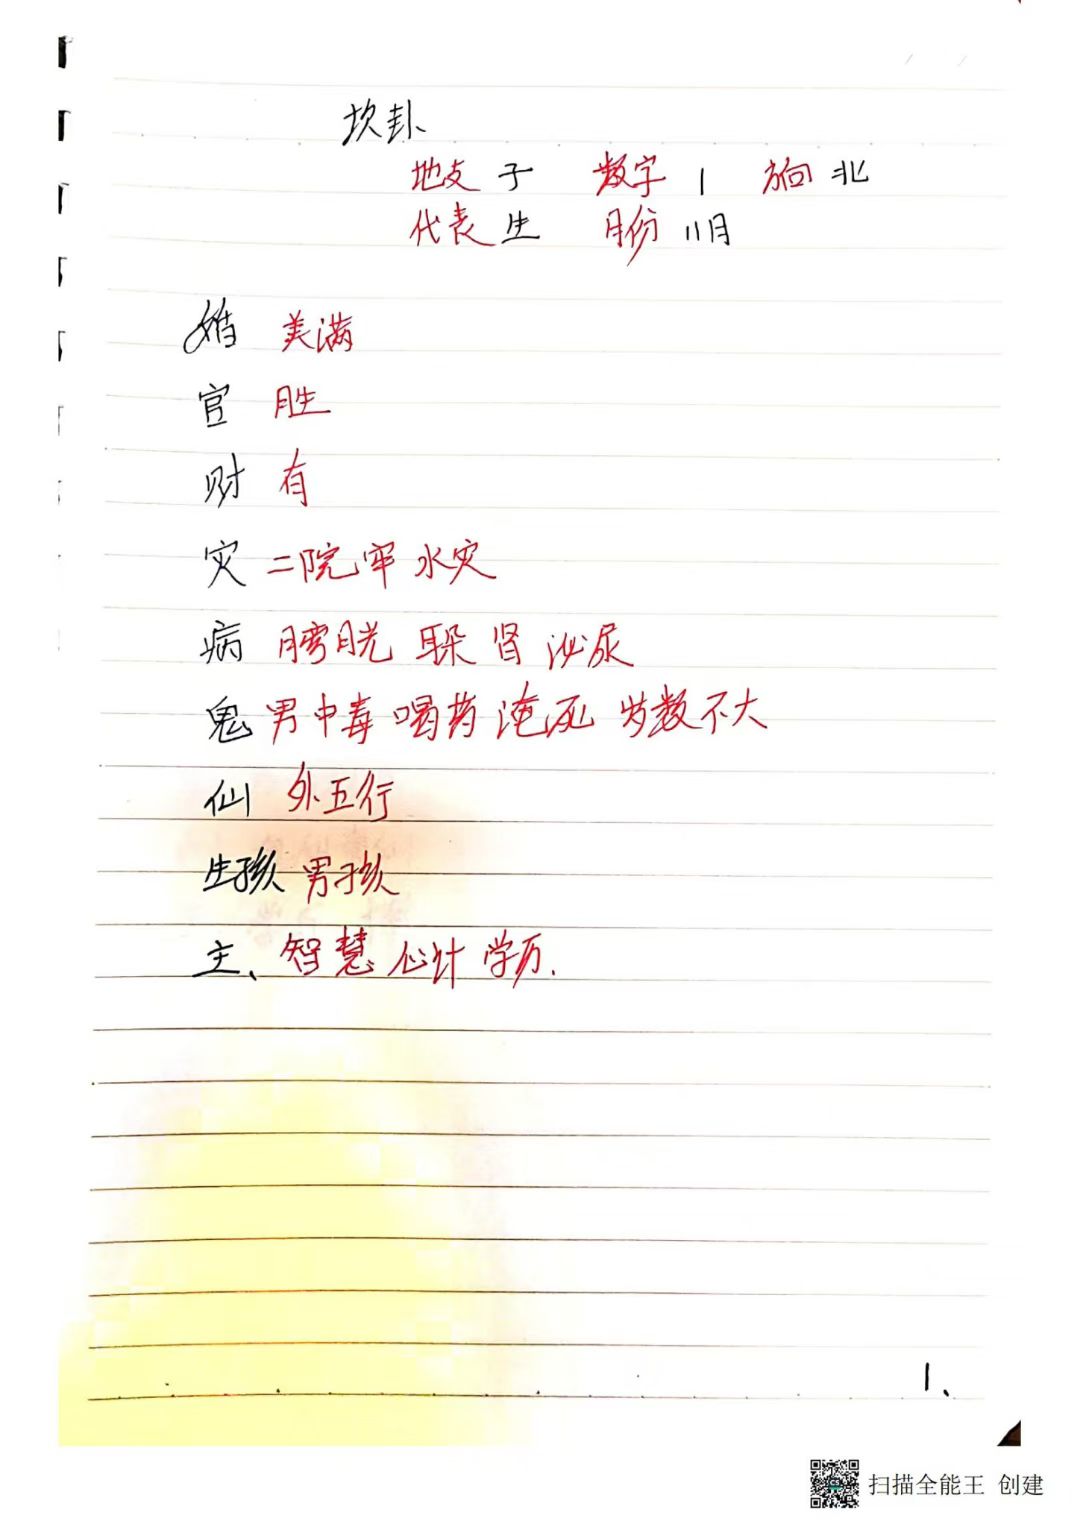 坎卦
地支 子 数字 1 方向 北
代表 生 月份 11月
婚 美满
官 胜
财 有
灾 二院 牢 水灾
病 膀胱 耳朵 肾 泌尿
鬼 男中毒 喝药 淹死 岁数不大
仙 外五行
生孩 男孩
主、智慧 心计 学历.
1、
扫描全能王 创建